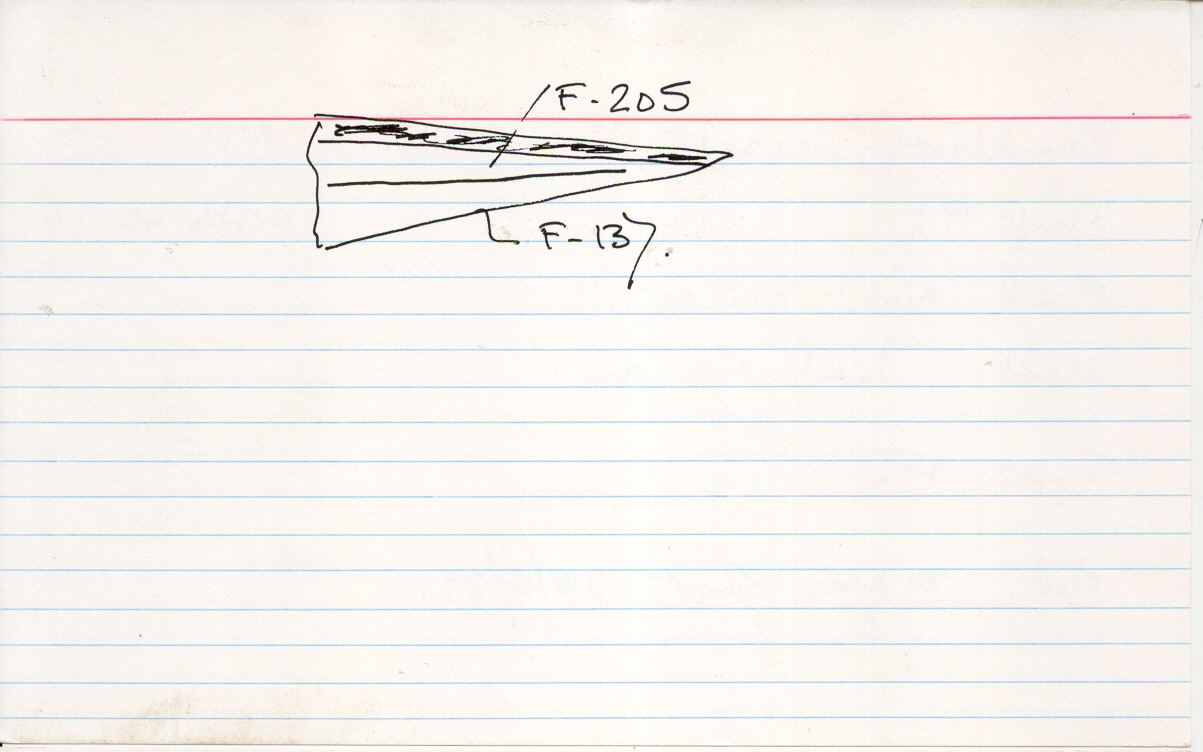 F-205
F-137.